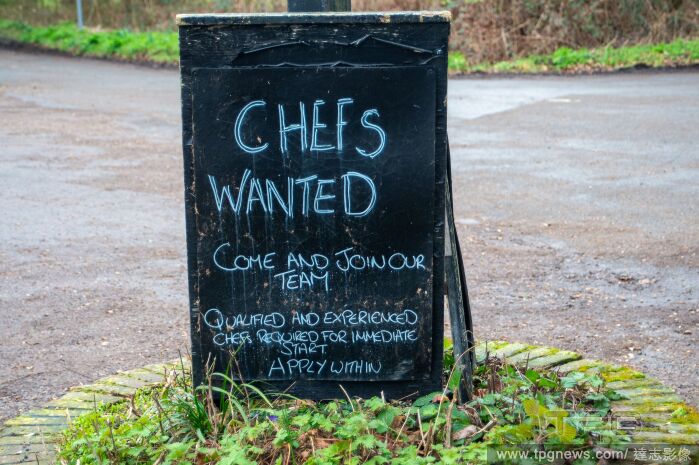 CHEFS
WANTED
COME AND JOIN OUR
TEAM
QUALIFIED AND EXPERIENCED
CHEFS REQUIRED FOR IMMEDIATE
START
APPLY WITHIN
TPG
www.tpgnews.com/ 達志影像